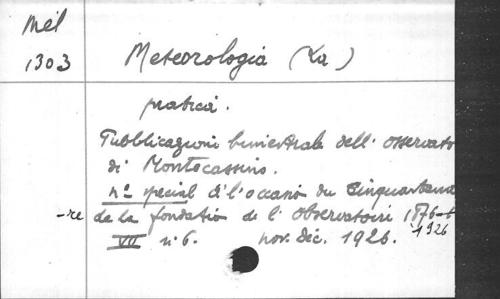 Mél
1303
Meteorologia (La)
pratica.
Pubblicazioni bimestrale dell' osservato
di Montecassino.
nº special à l'occasio du Cinquantena
-re de la fondatio de l' Observatoire 1876-6
1926
VII nº 6. nov. dic. 1926.